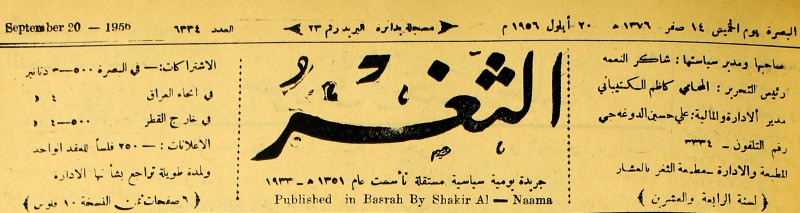 البصرة يوم الخميس ١٤ صفر ١٣٧٦ هـ ٢٠ أيلول ١٩٥٦ م
مسجلة بدائرة البريد رقم ٢٣
العدد ٦٣٣٤
September 20 — 1956
صاحبها ومدير سياستها : شاكر النعمه
رئيس التحرير : المحامي كاظم الكتيباني
مدير ألادارة والمالية : علي حسين الدوغه جي
رقم التلفون — ٣٣٣٤
المطبعة والادارة — مطبعة الثغر بالعشار
﴿ لسنة الرابعة والعشرين ﴾
الثغر
جريدة يومية سياسية مستقلة تأسست عام ١٣٥١ هـ – ١٩٣٣
Published in Basrah By Shakir Al — Naama
الاشتراكات : — في البصرة ٥٠٠ — دنانير
في انحاء العراق ٤ د
في خارج القطر ٥٠٠ — ٤ د
الاعلانات : — ٢٥٠ فلساً للعقد الواحد
ولمدة طويلة تراجع بشأنها الادارة
﴿ ٦ صفحات ثمن النسخة ١٠ فلوس ﴾